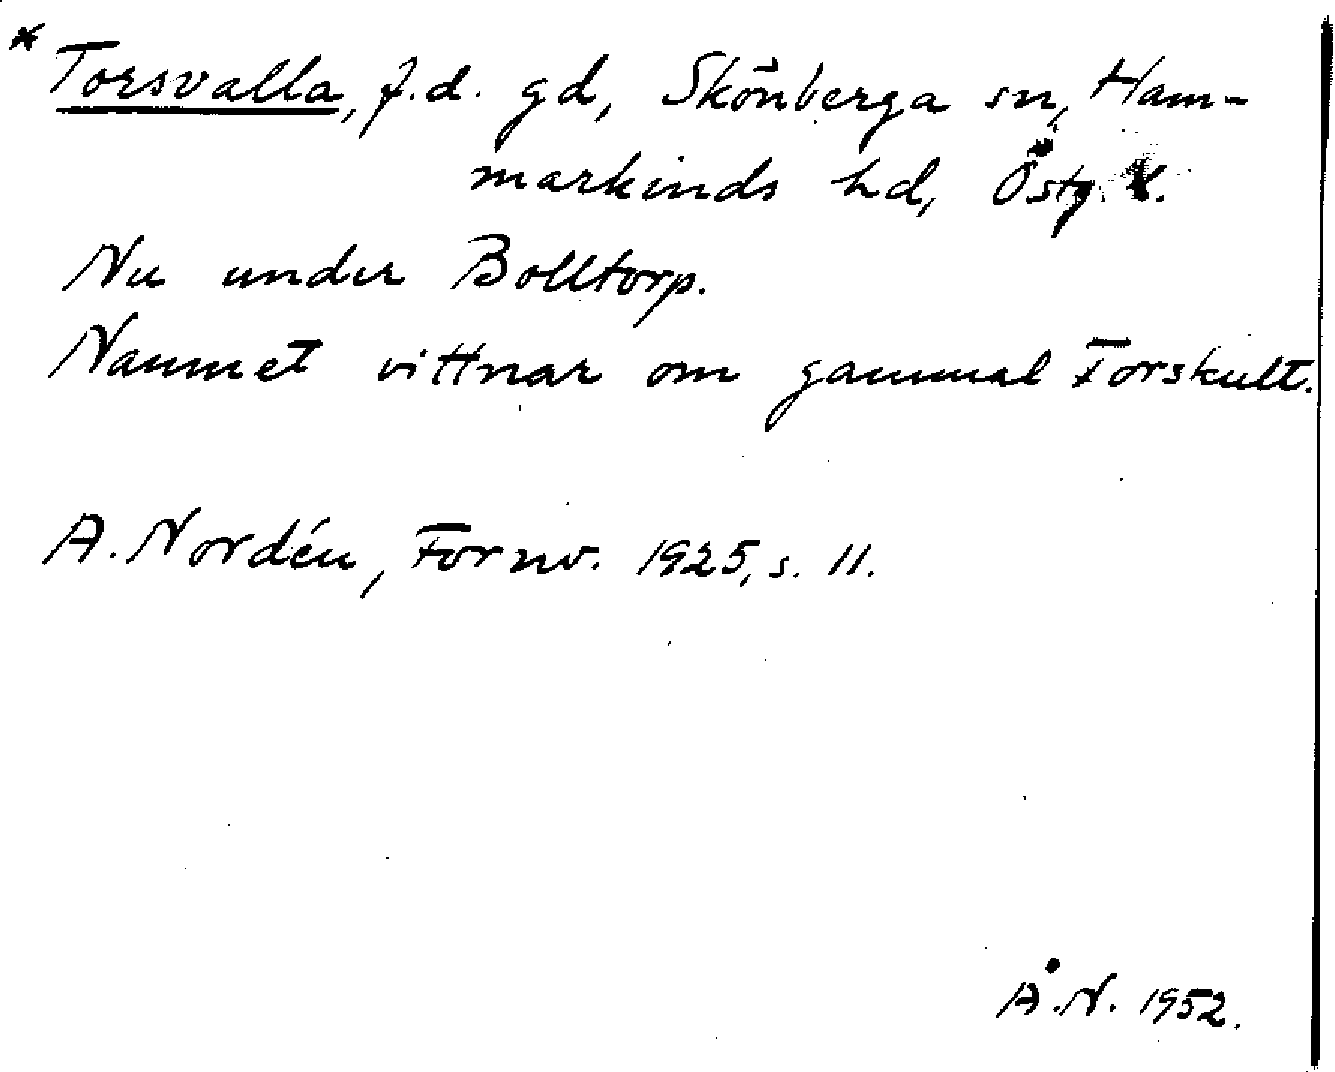 * Torsvalla, f.d. gd, Skönberga sn, Ham-
markinds hd, Östg. l.
Nu under Bolltorp.
Namnet vittnar om gammal Torskult.
A. Nordén, Fornv. 1925, s. 11.
Å.N. 1952.